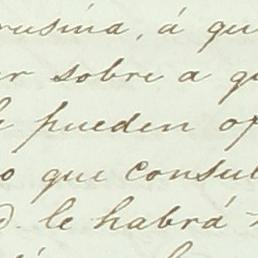 rusina, á qu
er sobre a q
pueden of
o que consul
D. le habrá